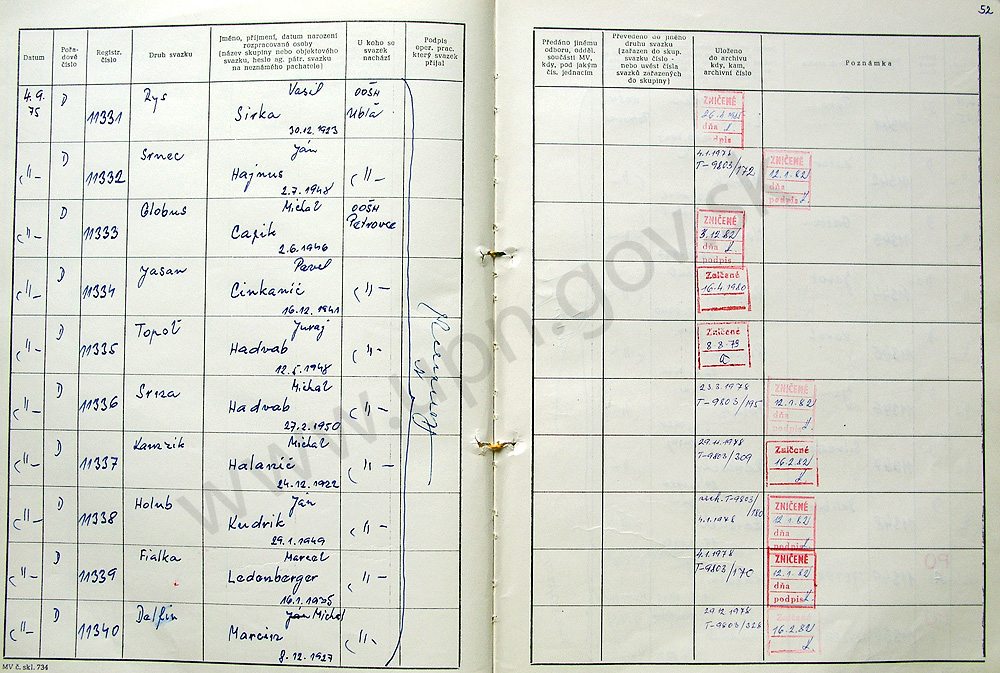 52
Datum
Pořa-
dové
číslo
Registr.
číslo
Druh svazku
Jméno, příjmení, datum narození
rozpracované osoby
(název skupiny nebo objektového
svazku, heslo ag. pátr. svazku
na neznámého pachatele)
U koho se
svazek
nachází
Podpis
oper. prac.
který svazek
přijal
Předáno jinému
odboru, odděl.
součásti MV,
kdy, pod jakým
čís. jednacím
Převedeno do jiného
druhu svazku
(zařazen do skup.
svazku číslo -
nebo uvést čísla
svazků zařazených
do skupiny)
Uloženo
do archivu
kdy, kam,
archivní číslo
Poznámka
4.9.
75
D
11331
Rys
Vasil
Sirka
30.12.1923
OOŠH
Ublá
ZNIČENÉ
dňa
dpis
D
11332
Srnec
Ján
Hajnus
2.7.1948
4.1.1978
T-9803/172
ZNIČENÉ
12.1.82
dňa
podpis
D
11333
Globus
Michal
Capik
2.6.1946
OOŠH
Petrovce
ZNIČENÉ
3.12.82
dňa
podpis
D
11334
Jasan
Pavel
Cinkanič
16.12.1941
Zničené
16.4.1980
D
11335
Topoľ
Juraj
Hadvab
12.5.1948
Zničené
8-8-79
D
11336
Srna
Michal
Hadvab
27.2.1950
23.3.1978
T-9803/195
ZNIČENÉ
12.1.82
dňa
podpis
D
11337
Kamzik
Michal
Halanič
24.12.1922
29.11.1978
T-9803/309
Zničené
16.2.82
D
11338
Holub
Ján
Kudrik
29.1.1949
arch. T-9803/
180
4.1.1978
ZNIČENÉ
12.1.82
dňa
podpis
D
11339
Fialka
Marcel
Ledenberger
16.1.1935
4.1.1978
T-9803/170
ZNIČENÉ
12.1.82
dňa
podpis
D
11340
Delfin
Ján Michal
Marcin
8.12.1927
29.12.1978
T-9803/328
16.2.82
MV č. skl. 734
www.upn.gov.sk